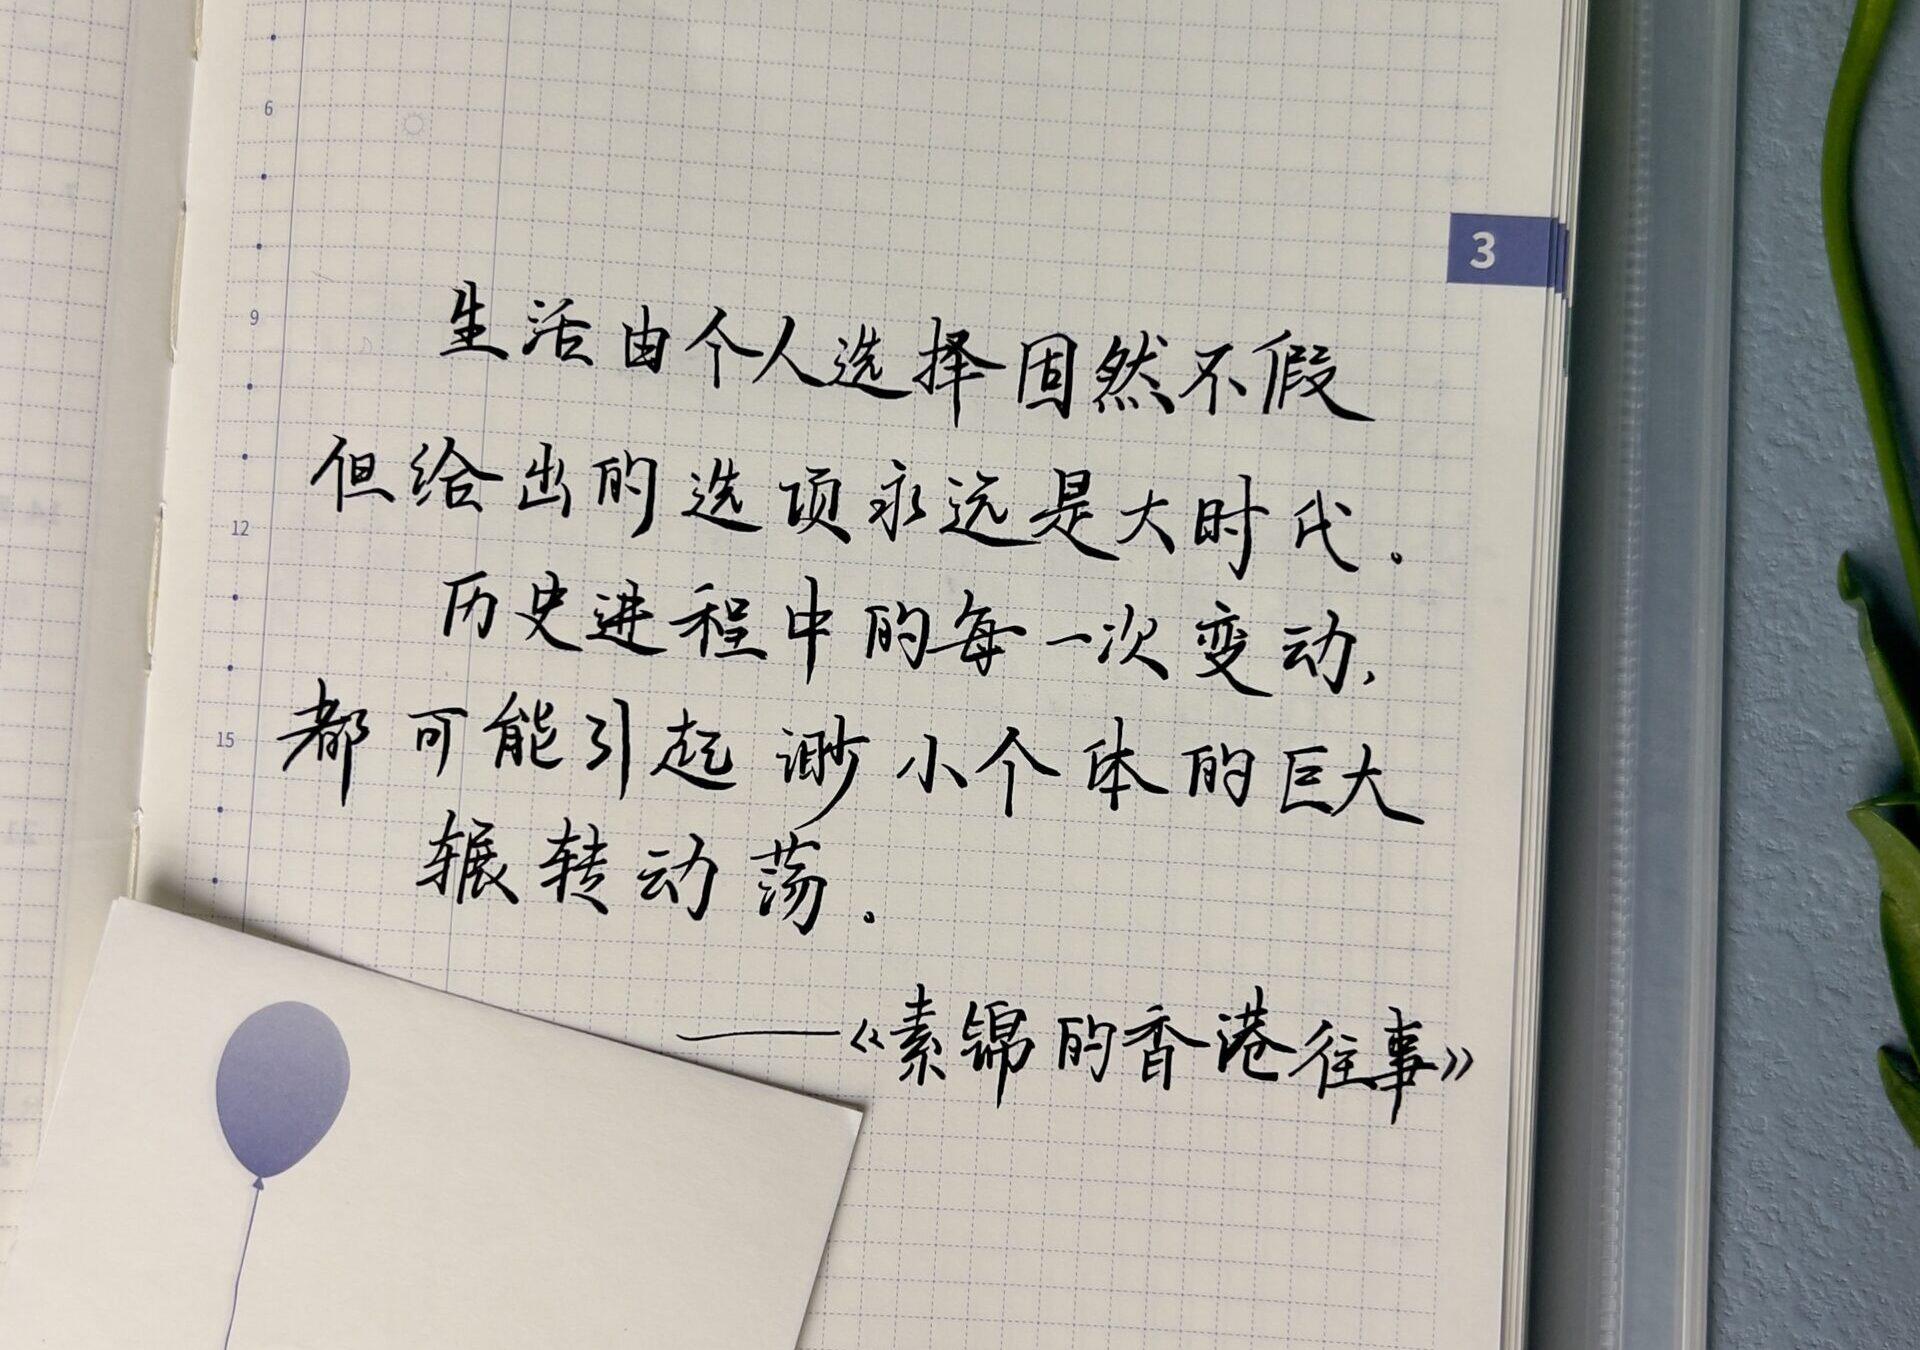 6
3
9
生活由个人选择固然不假
但给出的选项永远是大时代。
12
历史进程中的每一次变动，
15
都可能引起渺小个体的巨大
辗转动荡。
——《素锦的香港往事》